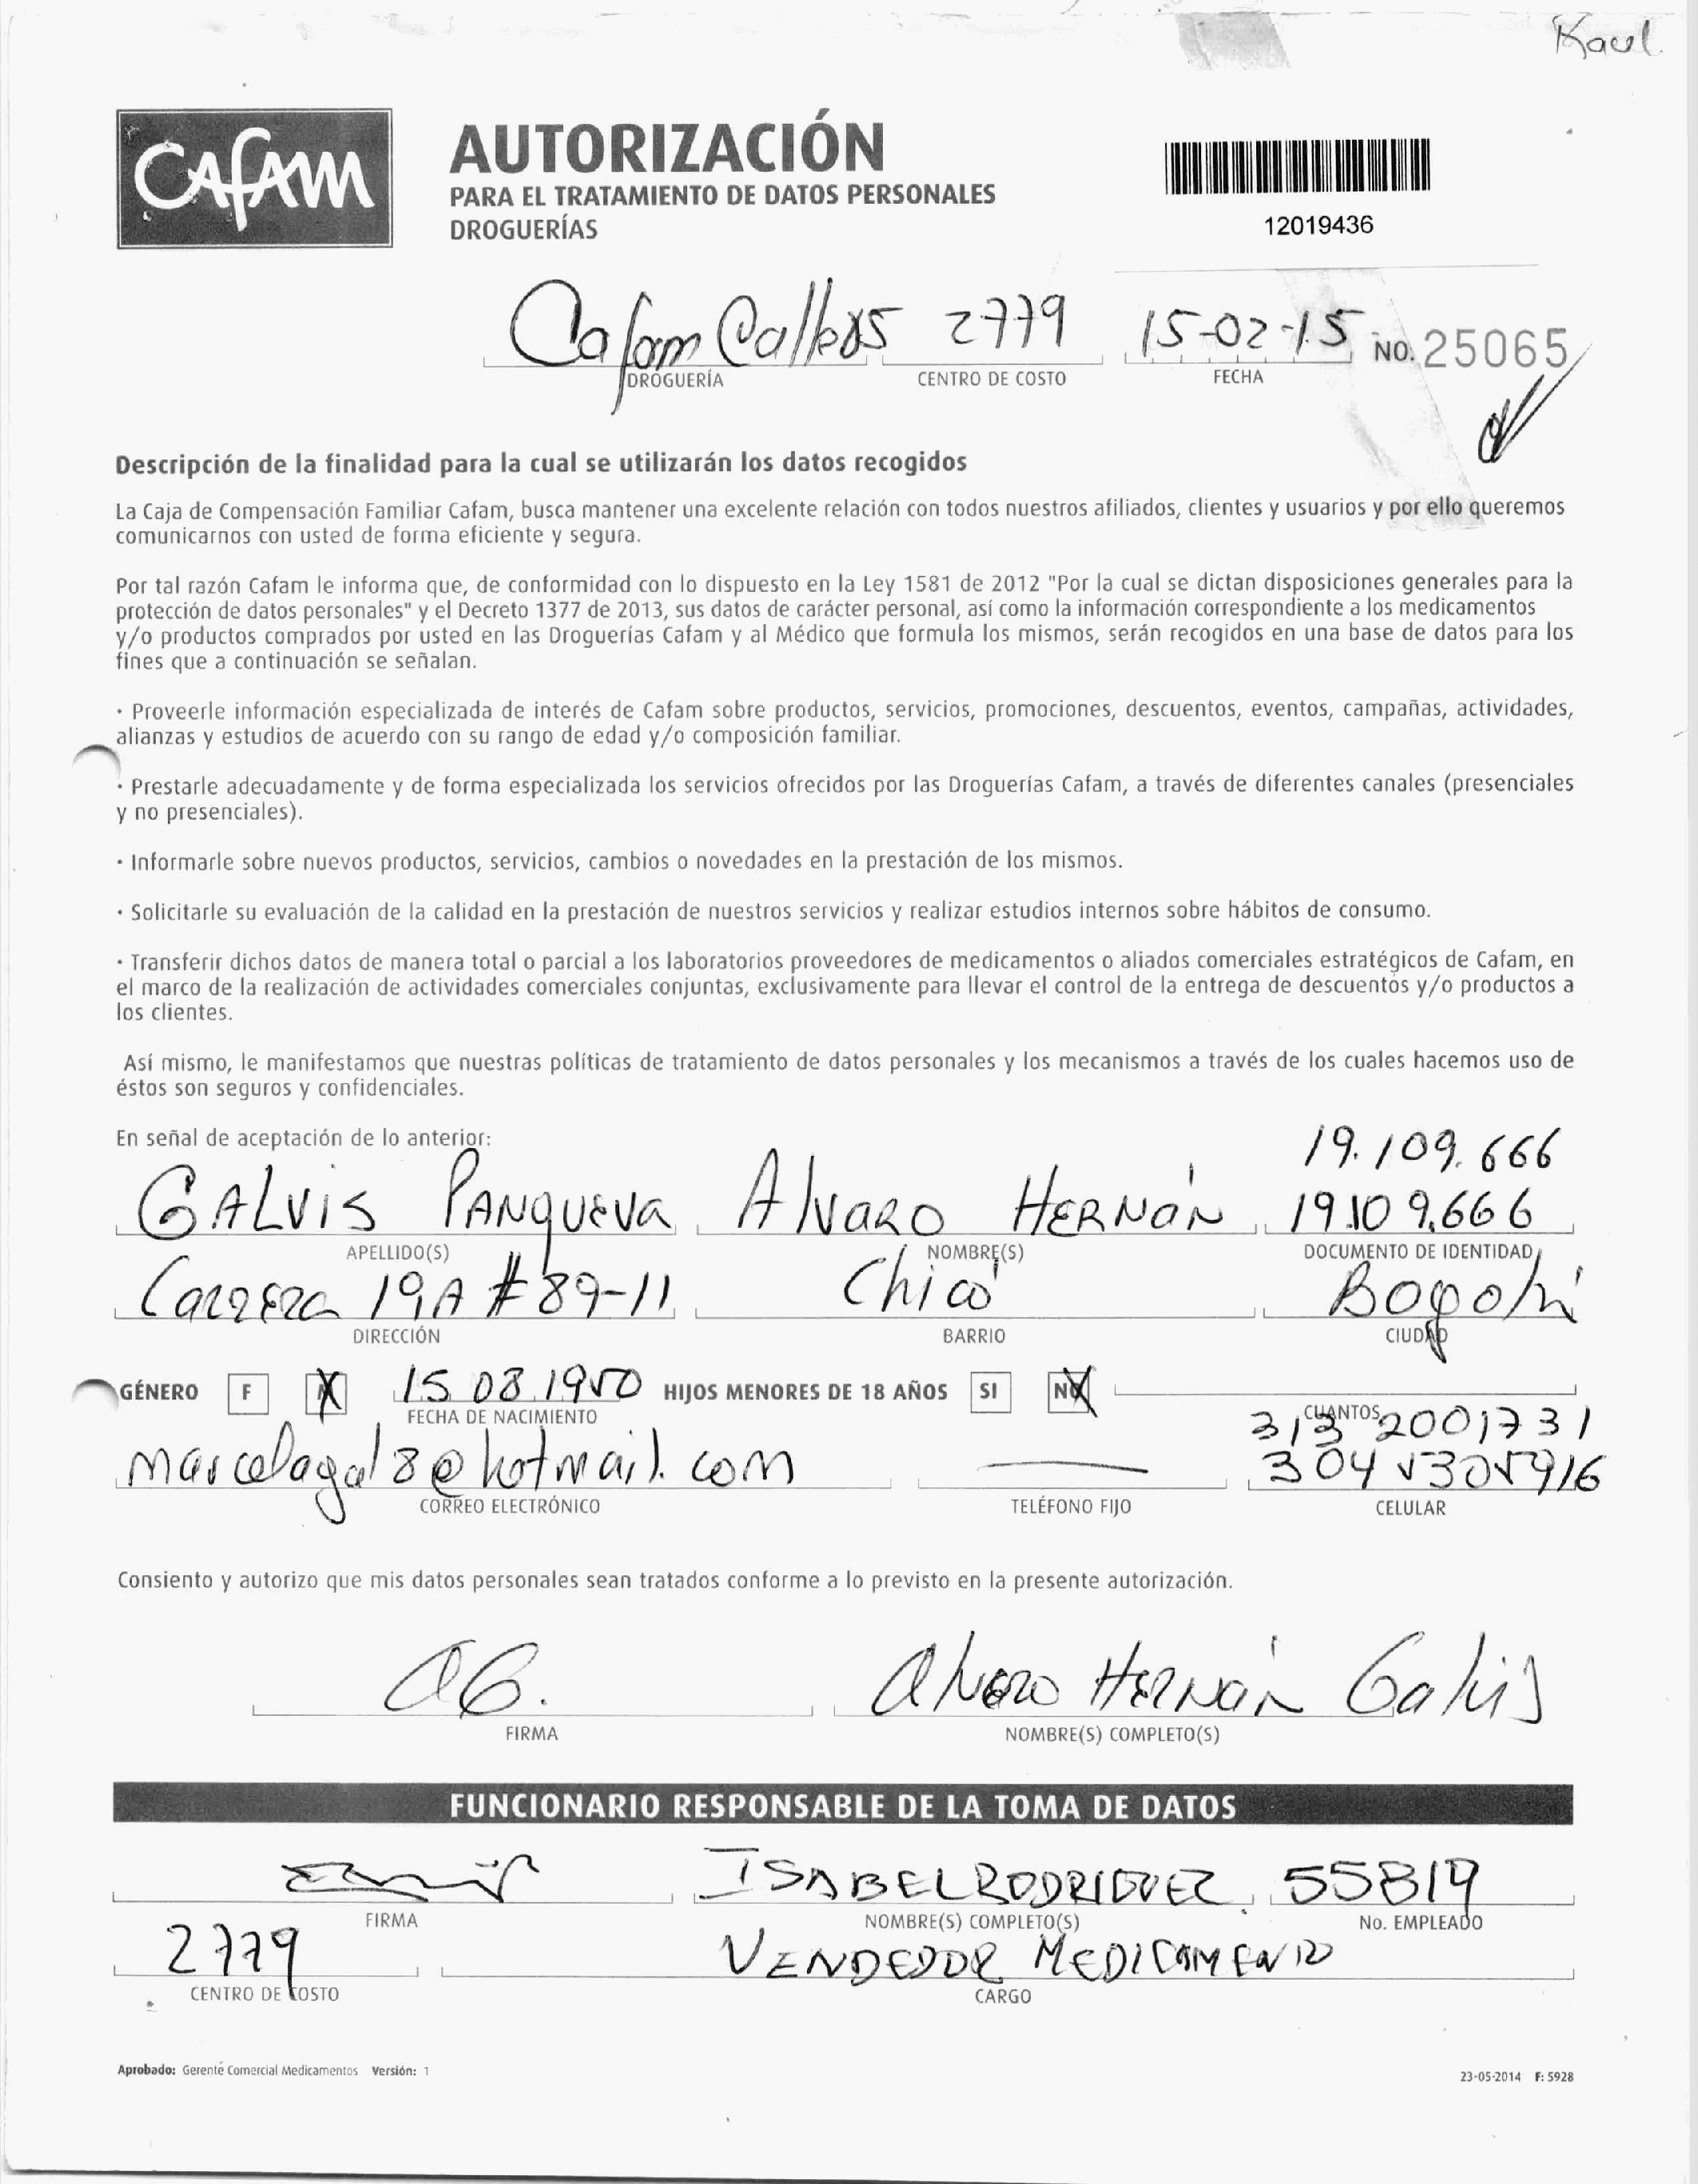 Kaul.
CAFAM
AUTORIZACIÓN
PARA EL TRATAMIENTO DE DATOS PERSONALES
DROGUERÍAS
12019436
Cafam Calle 85 2779 15-02-15 NO. 25065
DROGUERÍA CENTRO DE COSTO FECHA
Descripción de la finalidad para la cual se utilizarán los datos recogidos
La Caja de Compensación Familiar Cafam, busca mantener una excelente relación con todos nuestros afiliados, clientes y usuarios y por ello queremos
comunicarnos con usted de forma eficiente y segura.
Por tal razón Cafam le informa que, de conformidad con lo dispuesto en la Ley 1581 de 2012 "Por la cual se dictan disposiciones generales para la
protección de datos personales" y el Decreto 1377 de 2013, sus datos de carácter personal, así como la información correspondiente a los medicamentos
y/o productos comprados por usted en las Droguerías Cafam y al Médico que formula los mismos, serán recogidos en una base de datos para los
fines que a continuación se señalan.
· Proveerle información especializada de interés de Cafam sobre productos, servicios, promociones, descuentos, eventos, campañas, actividades,
alianzas y estudios de acuerdo con su rango de edad y/o composición familiar.
· Prestarle adecuadamente y de forma especializada los servicios ofrecidos por las Droguerías Cafam, a través de diferentes canales (presenciales
y no presenciales).
· Informarle sobre nuevos productos, servicios, cambios o novedades en la prestación de los mismos.
· Solicitarle su evaluación de la calidad en la prestación de nuestros servicios y realizar estudios internos sobre hábitos de consumo.
· Transferir dichos datos de manera total o parcial a los laboratorios proveedores de medicamentos o aliados comerciales estratégicos de Cafam, en
el marco de la realización de actividades comerciales conjuntas, exclusivamente para llevar el control de la entrega de descuentos y/o productos a
los clientes.
Así mismo, le manifestamos que nuestras políticas de tratamiento de datos personales y los mecanismos a través de los cuales hacemos uso de
éstos son seguros y confidenciales.
En señal de aceptación de lo anterior:
19.109.666
GALVIS PANQUEVA ALVARO HERNÁN 19.109.666
APELLIDO(S) NOMBRE(S) DOCUMENTO DE IDENTIDAD
Carrera 19A # 89-11 Chicó Bogotá
DIRECCIÓN BARRIO CIUDAD
GÉNERO F M 15 08 1950 HIJOS MENORES DE 18 AÑOS SI NO
FECHA DE NACIMIENTO CUANTOS
313 2001731
marcelagal8@hotmail.com 304 5305916
CORREO ELECTRÓNICO TELÉFONO FIJO CELULAR
Consiento y autorizo que mis datos personales sean tratados conforme a lo previsto en la presente autorización.
AG. Alvaro Hernán Galvis
FIRMA NOMBRE(S) COMPLETO(S)
FUNCIONARIO RESPONSABLE DE LA TOMA DE DATOS
ISABEL RODRIGUEZ. 55819
FIRMA NOMBRE(S) COMPLETO(S) No. EMPLEADO
2779 VENDEDOR MEDICAMENTO
CENTRO DE COSTO CARGO
Aprobado: Gerente Comercial Medicamentos Versión: 1 23-05-2014 F: 5928